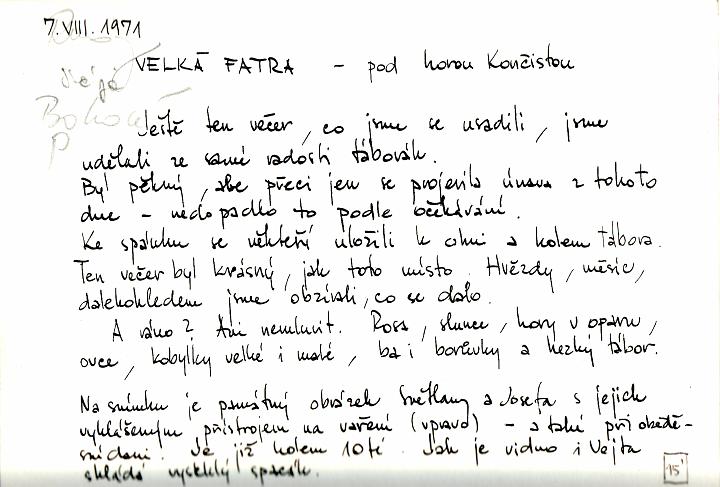 7.VIII.1971
VELKÁ FATRA – pod horou Končistou
Ještě ten večer, co jsme se usadili, jsme
udělali ze samé radosti táborák.
Byl pěkný, ale přeci jen se projevila únava z tohoto
dne – nedopadlo to podle očekávání.
Ke spánku se někteří uložili k ohni a kolem tábora.
Ten večer byl krásný, jak toto místo. Hvězdy, měsíc,
dalekohledem jsme obzírali, co se dalo.
A ráno? Ani nemluvit. Rosa, slunce, hory v oparu,
ovce, kobylky velké i malé, ba i borůvky a hezký tábor.
Na snímku je památný obrázek Světlany a Josefa s jejich
vyhlášeným přístrojem na vaření (vpravo) – a také při obědě-
snídani. Je již kolem 10té. Jak je vidno i Vejta
skládá vyschlý spacák.
15'